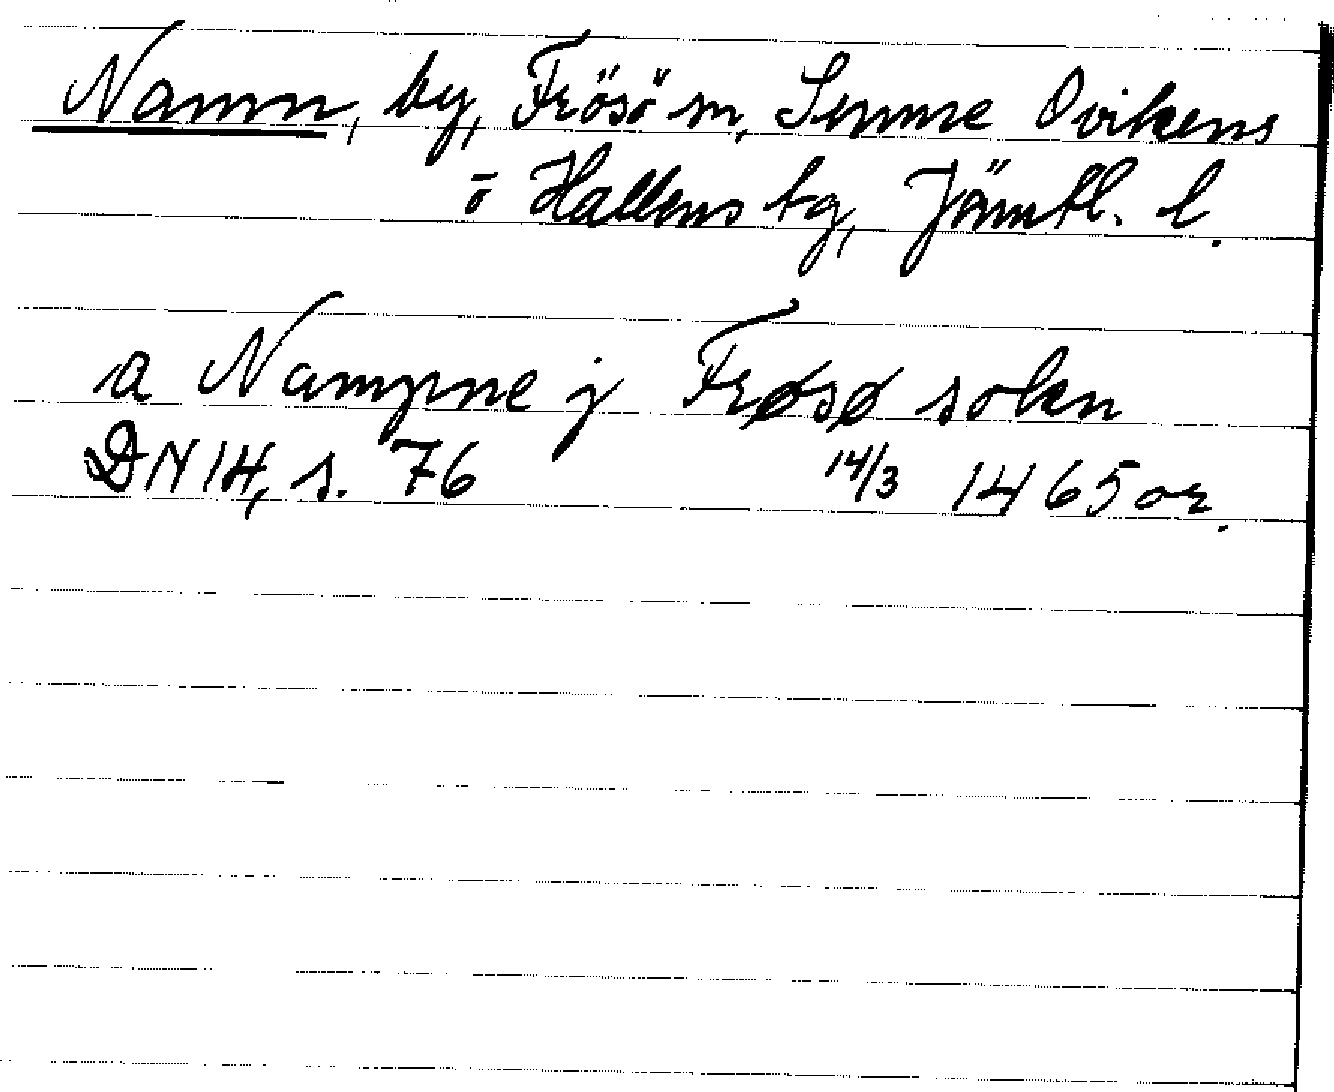 Namn, by, Frösö sn, Sunne Ovikens
o Hallens tg, Jämtl. l.
a Nampne j Frøsø sokn
DN 14, s. 76 14/3 1465 or.